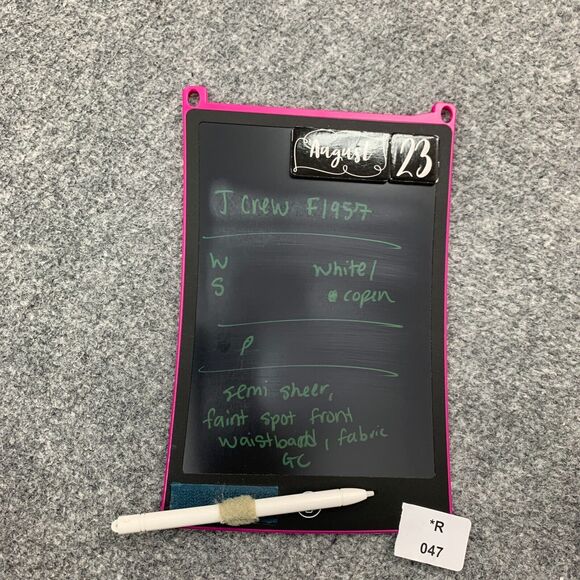 August 23
J crew F1957
W white/
S copen
P
semi sheer,
faint spot front
waistband, fabric
GC
*R
047